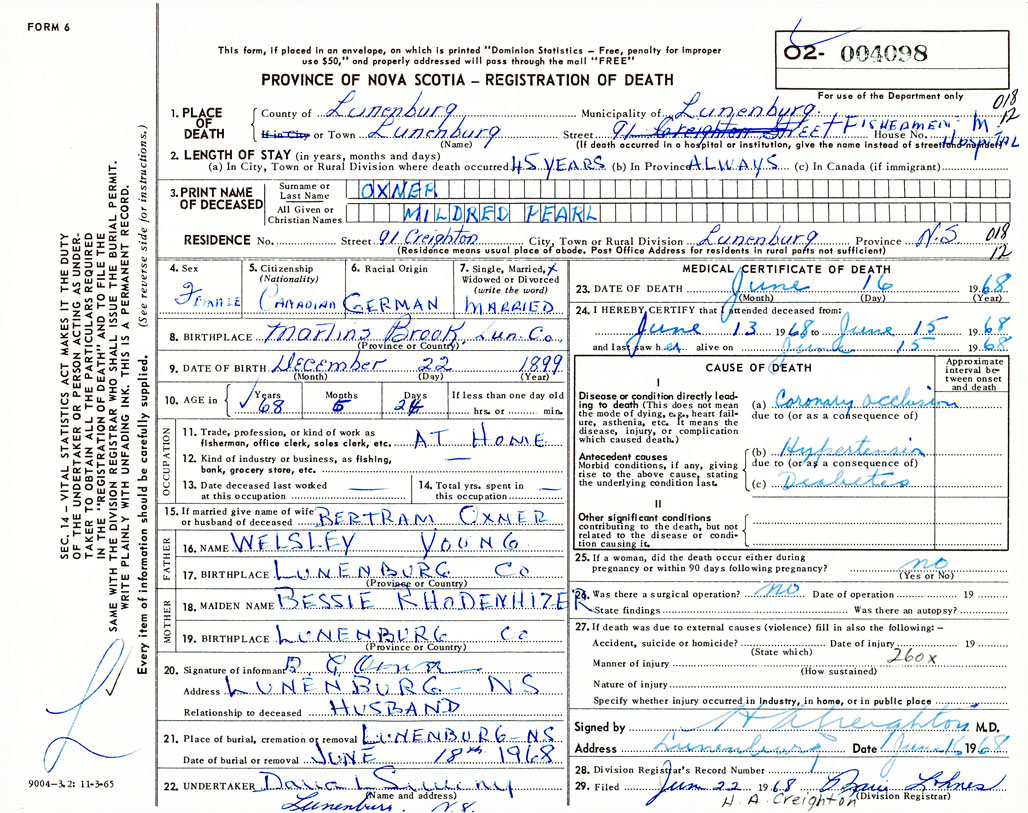 FORM 6
This form, if placed in an envelope, on which is printed "Dominion Statistics – Free, penalty for improper
use $50," and properly addressed will pass through the mail "FREE"
PROVINCE OF NOVA SCOTIA – REGISTRATION OF DEATH
02- 004098
For use of the Department only
018
12
1. PLACE OF DEATH
County of Lunenburg Municipality of Lunenburg
If in City or Town Lunenburg Street 91 Creighton Street FISHERMEN M. House No. Hospital
(Name) (If death occurred in a hospital or institution, give the name instead of street and number)
2. LENGTH OF STAY (in years, months and days)
(a) In City, Town or Rural Division where death occurred 45 YEARS (b) In Province ALWAYS (c) In Canada (if immigrant)
3. PRINT NAME OF DECEASED
Surname or Last Name OXNER
All Given or Christian Names MILDRED PEARL
RESIDENCE No. Street 91 Creighton City, Town or Rural Division Lunenburg Province N.S.
(Residence means usual place of abode. Post Office Address for residents in rural parts not sufficient)
018
12
4. Sex FEMALE
5. Citizenship (Nationality) CANADIAN
6. Racial Origin GERMAN
7. Single, Married, Widowed or Divorced (write the word) MARRIED
8. BIRTHPLACE Martins Brook, Lun. Co.
(Province or Country)
9. DATE OF BIRTH December 22 1899
(Month) (Day) (Year)
10. AGE in Years 68 Months 5 Days 24 If less than one day old
hrs. or min.
OCCUPATION
11. Trade, profession, or kind of work as
fisherman, office clerk, sales clerk, etc. AT HOME
12. Kind of industry or business, as fishing,
bank, grocery store, etc.
13. Date deceased last worked
at this occupation
14. Total yrs. spent in
this occupation
15. If married give name of wife
or husband of deceased BERTRAM OXNER
FATHER
16. NAME WELSLEY YOUNG
17. BIRTHPLACE LUNENBURG CO
(Province or Country)
MOTHER
18. MAIDEN NAME BESSIE RHODENHIZER
19. BIRTHPLACE LUNENBURG CO
(Province or Country)
20. Signature of informant
Address LUNENBURG – NS
Relationship to deceased HUSBAND
21. Place of burial, cremation or removal LUNENBURG – NS
Date of burial or removal JUNE 18th 1968
22. UNDERTAKER
(Name and address)
Lunenburg N.S.
MEDICAL CERTIFICATE OF DEATH
23. DATE OF DEATH June 16 1968
(Month) (Day) (Year)
24. I HEREBY CERTIFY that I attended deceased from:
June 13 1968 to June 15 1968
and last saw her alive on June 15 1968
CAUSE OF DEATH
Approximate interval between onset and death
I
Disease or condition directly leading to death (This does not mean the mode of dying, e.g., heart failure, asthenia, etc. It means the disease, injury, or complication which caused death.)
(a) Coronary occlusion
due to (or as a consequence of)
Antecedent causes
Morbid conditions, if any, giving rise to the above cause, stating the underlying condition last.
(b) Hypertension
due to (or as a consequence of)
(c) Diabetes
II
Other significant conditions
contributing to the death, but not related to the disease or condition causing it.
25. If a woman, did the death occur either during
pregnancy or within 90 days following pregnancy? no
(Yes or No)
26. Was there a surgical operation? no Date of operation 19
State findings Was there an autopsy?
27. If death was due to external causes (violence) fill in also the following: –
Accident, suicide or homicide? Date of injury 19
(State which)
260x
Manner of injury
(How sustained)
Nature of injury
Specify whether injury occurred in Industry, in home, or in public place
Signed by H A Creighton M.D.
Address Lunenburg Date June 16 1968
28. Division Registrar's Record Number
29. Filed June 22 1968
(Division Registrar)
H. A. Creighton
SEC. 14 – VITAL STATISTICS ACT MAKES IT THE DUTY
OF THE UNDERTAKER OR PERSON ACTING AS UNDER-
TAKER TO OBTAIN ALL THE PARTICULARS REQUIRED
IN THE "REGISTRATION OF DEATH" AND TO FILE THE
SAME WITH THE DIVISION REGISTRAR WHO SHALL ISSUE THE BURIAL PERMIT.
WRITE PLAINLY WITH UNFADING INK. THIS IS A PERMANENT RECORD.
Every item of information should be carefully supplied. (See reverse side for instructions.)
9004-3.2: 11-3-65